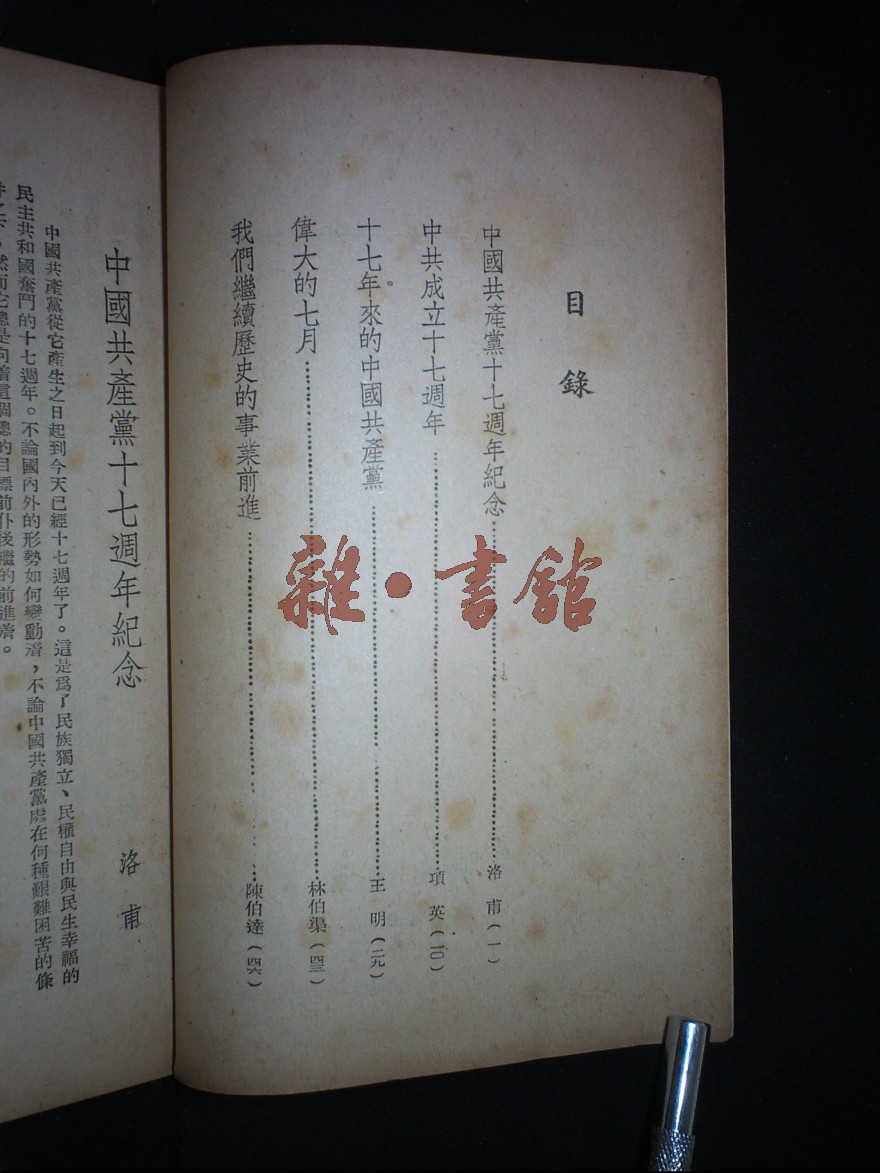 目錄
中國共產黨十七週年紀念……洛甫(一)
中共成立十七週年……項英(一〇)
十七年來的中國共產黨……王明(二九)
偉大的七月……林伯渠(四三)
我們繼續歷史的事業前進……陳伯達(四六)
中國共產黨十七週年紀念 洛甫
中國共產黨從它產生之日起到今天已經十七週年了。這是爲了民族獨立、民權自由與民生幸福的
民主共和國奮鬥的十七週年。不論國內外的形勢如何變動着,不論中國共產黨處在何種艱難困苦的條
件之下,然而它總是向着這個總的目標前仆後繼的前進着。
雜·書館